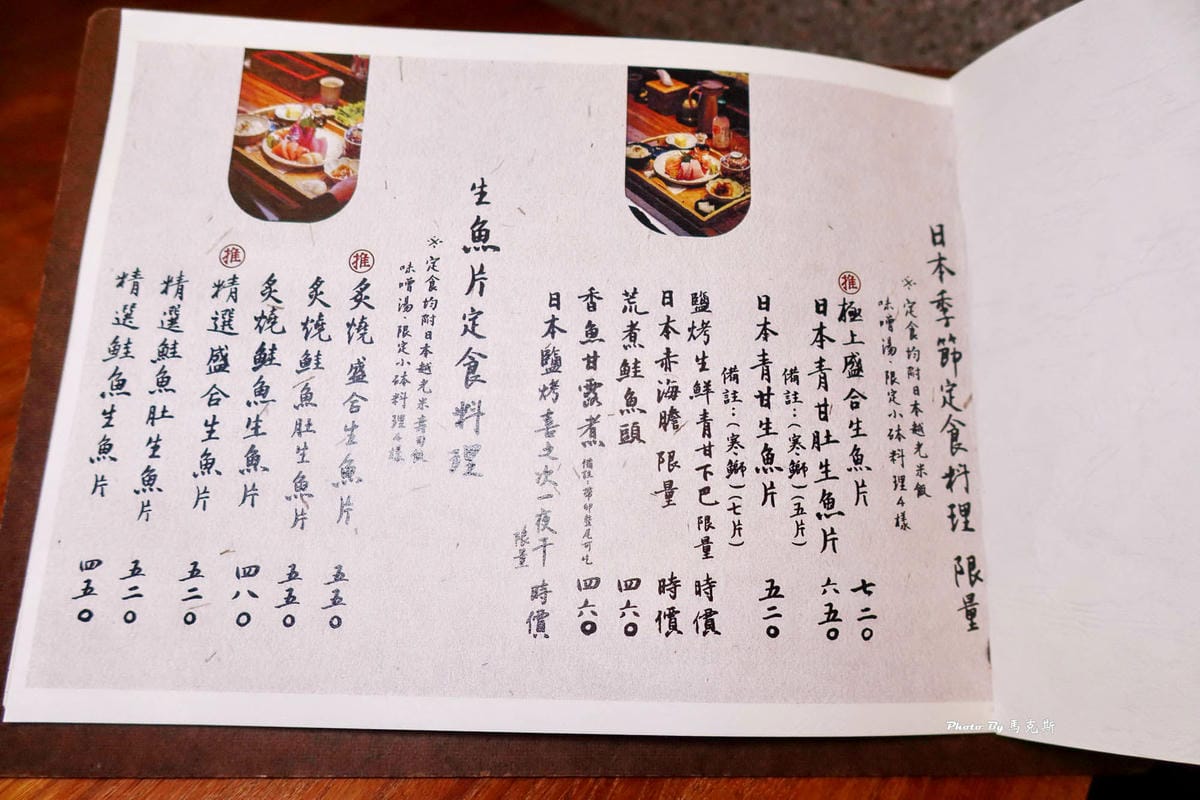 日本季節定食料理 限量
※定食均附日本越光米飯
味噌湯、限定小缽料理4樣
推 極上盛合生魚片 七二〇
日本青甘肚生魚片 六五〇
備註：(寒鰤)(五片)
日本青甘生魚片 五二〇
備註：(寒鰤)(七片)
鹽烤生鮮青甘下巴限量 時價
日本赤海膽 限量 時價
荒煮鮭魚頭 四六〇
香魚甘露煮 備註：帶卵整尾可吃 四六〇
日本鹽烤喜之次一夜干 限量 時價
生魚片定食料理
※定食均附日本越光米壽司飯
味噌湯、限定小缽料理4樣
推 炙燒盛合生魚片 五五〇
炙燒鮭魚肚生魚片 五五〇
炙燒鮭魚生魚片 四八〇
推 精選盛合生魚片 五二〇
精選鮭魚肚生魚片 五二〇
精選鮭魚生魚片 四五〇
Photo By 馬克斯